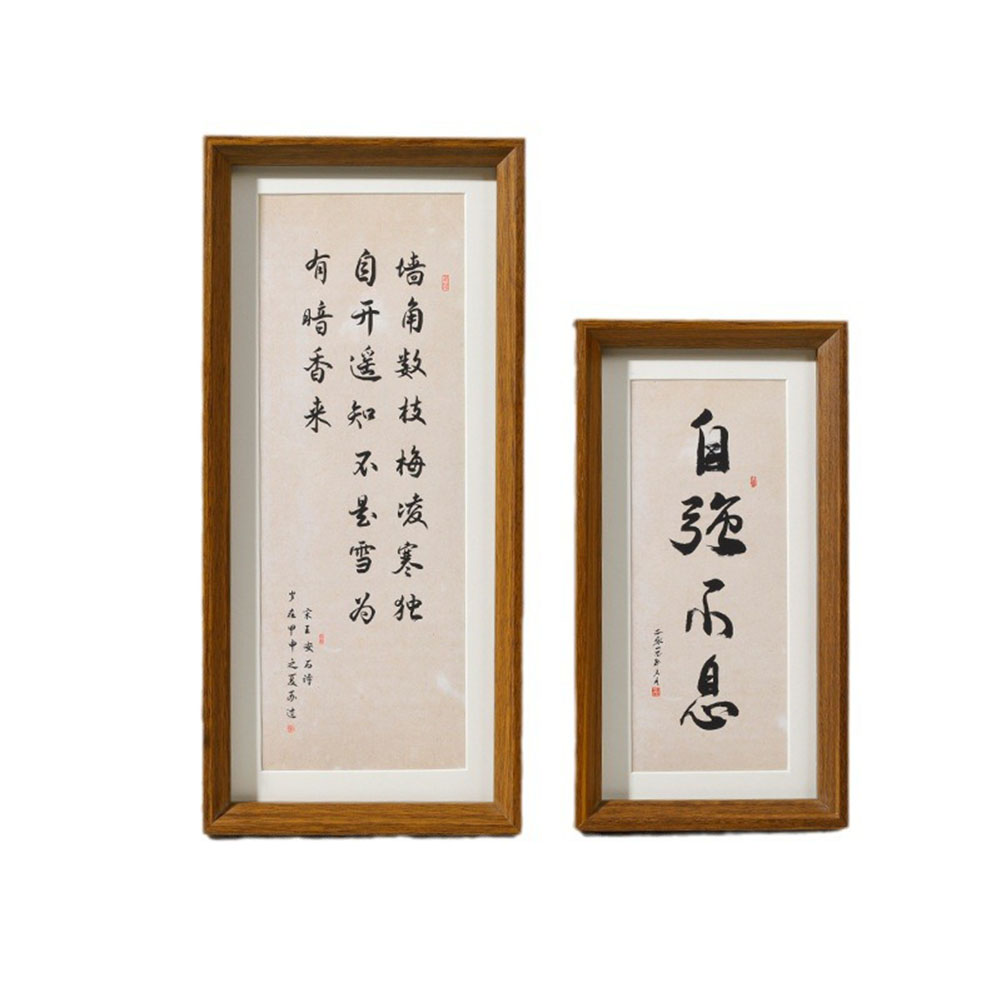 墙角数枝梅凌寒独
自开遥知不是雪为
有暗香来
宋王安石诗
岁在甲申之夏苏达
自强不息